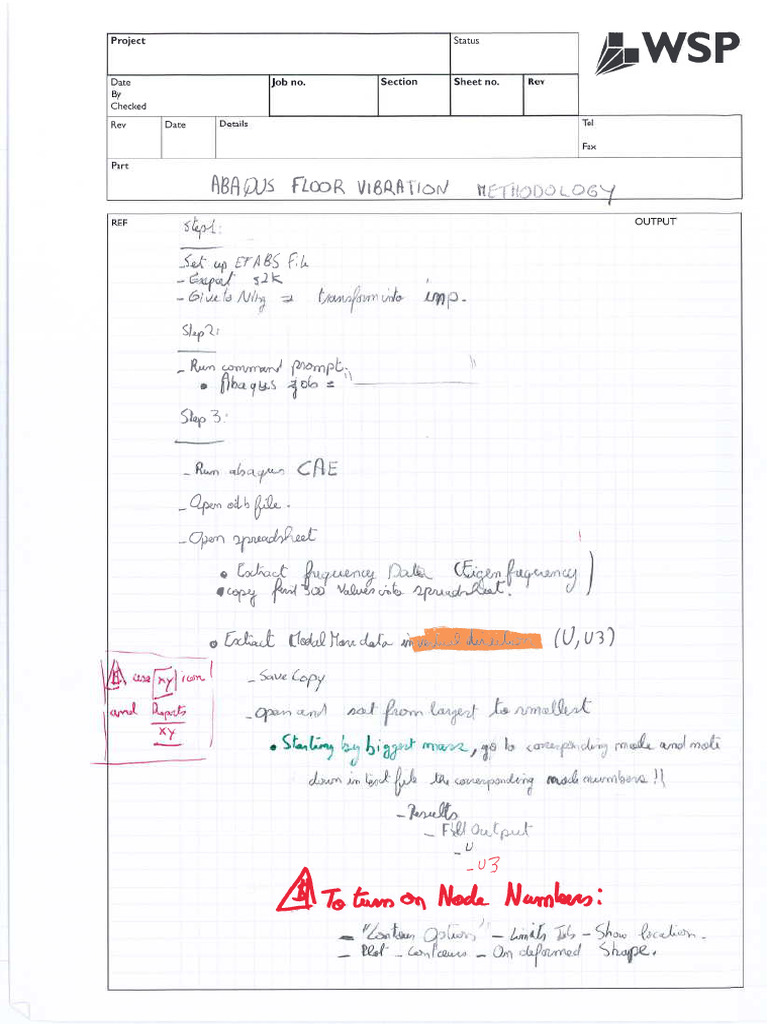 Project
Status
WSP
Date
By
Checked
Job no.
Section
Sheet no.
Rev
Rev
Date
Details
Tel
Fax
Part
ABAQUS FLOOR VIBRATION METHODOLOGY
REF
OUTPUT
Step1:
Set up ETABS File
- Export s2k
- Give to => transform into inp.
Step 2:
- Run command prompt.
• Abaqus job =
Step 3:
- Run abaqus CAE
- Open odb file.
- Open spreadsheet
• Extract frequency Data (Eigen frequency)
• copy first 300 values into spreadsheet.
• Extract Modal Mass data in vertical direction (U, U3)
! use xy icon
and Reports
xy
- Save Copy
- Open and sort from largest to smallest
• Starting by biggest mass, go to corresponding mode and note
down in text file the corresponding node numbers!!
- Results
- Field Output
- U
- U3
! To turn on Node Numbers:
- "Contour Options" - Limits Tab - Show location.
- Plot - Contours - On deformed Shape.